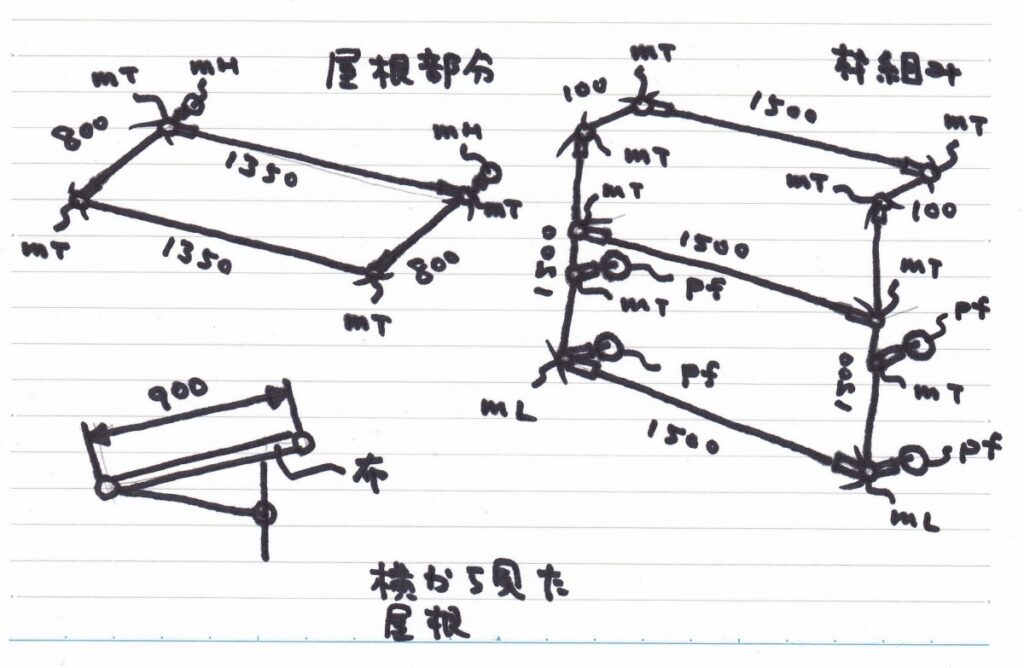 屋根部分
mT
mH
800
1350
mH
mT
mT
1350
800
mT
枠組み
mT
100
1500
mT
mT
mT
100
mT
1500
1500
pf
mT
mT
pf
pf
1500
mT
mL
1500
pf
mL
900
布
横から見た
屋根